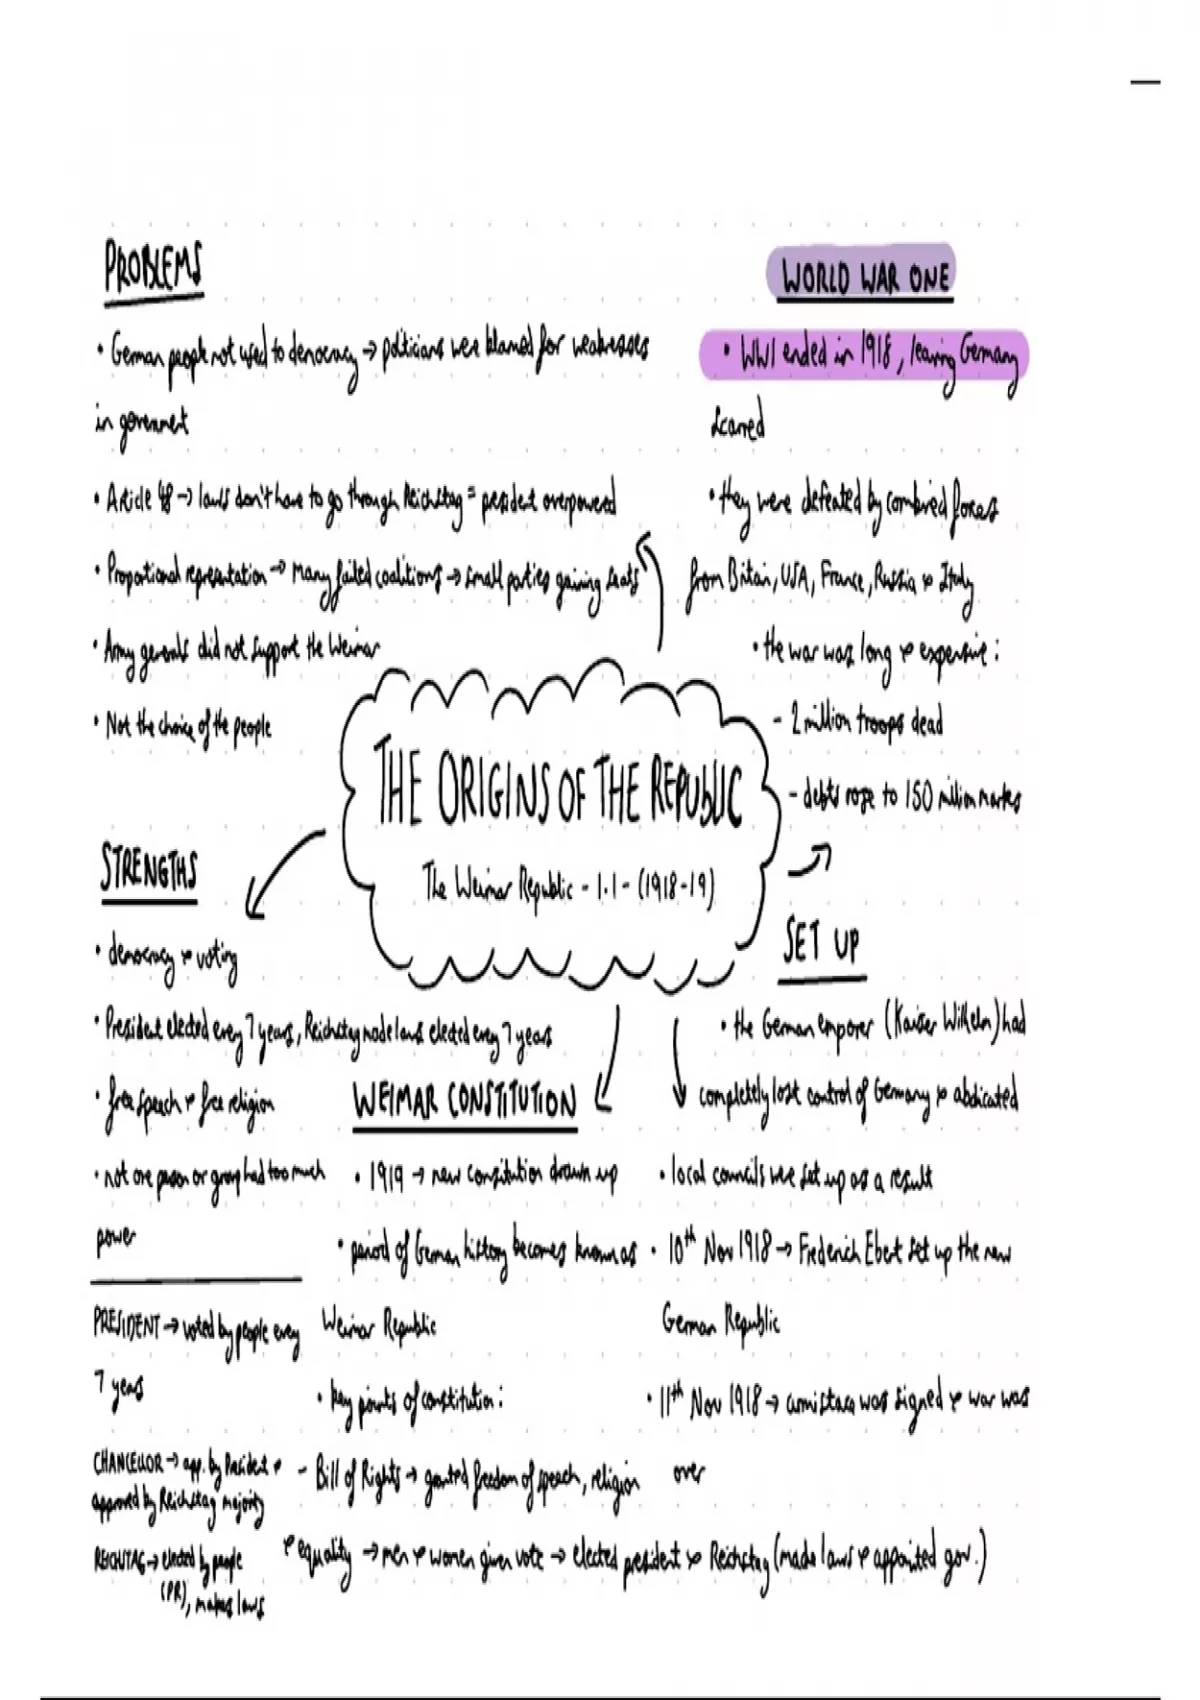 PROBLEMS
• German people not used to democracy → politicians were blamed for weaknesses
in government
• Article 48 → laws don't have to go through Reichstag = president overpowered
• Proportional representation → Many failed coalitions → small parties gaining seats
• Army generals did not support the Weimar
• Not the choice of the people
WORLD WAR ONE
• WW1 ended in 1918, leaving Germany
scarred
• they were defeated by combined forces
from Britain, USA, France, Russia & Italy
• the war was long & expensive:
- 2 million troops dead
- debts rose to 150 million marks
THE ORIGINS OF THE REPUBLIC
The Weimar Republic - 1.1 - (1918-19)
STRENGTHS
• democracy & voting
• President elected every 7 years, Reichstag made laws elected every 7 years
• free speech & free religion
• not one person or group had too much
power
PRESIDENT → voted by people every
7 years
CHANCELLOR → app. by President &
approved by Reichstag majority
REICHSTAG → elected by people
(PR), makes laws
WEIMAR CONSTITUTION
• 1919 → new constitution drawn up
• period of German history becomes known as
Weimar Republic
• key points of constitution:
- Bill of Rights → granted freedom of speech, religion
& equality → men & women given vote → elected president & Reichstag (made laws & appointed gov.)
SET UP
• the German emporer (Kaiser Wilhelm) had
completely lost control of Germany & abdicated
• local councils were set up as a result
• 10th Nov 1918 → Frederich Ebert set up the new
German Republic
• 11th Nov 1918 → was signed & war was
over